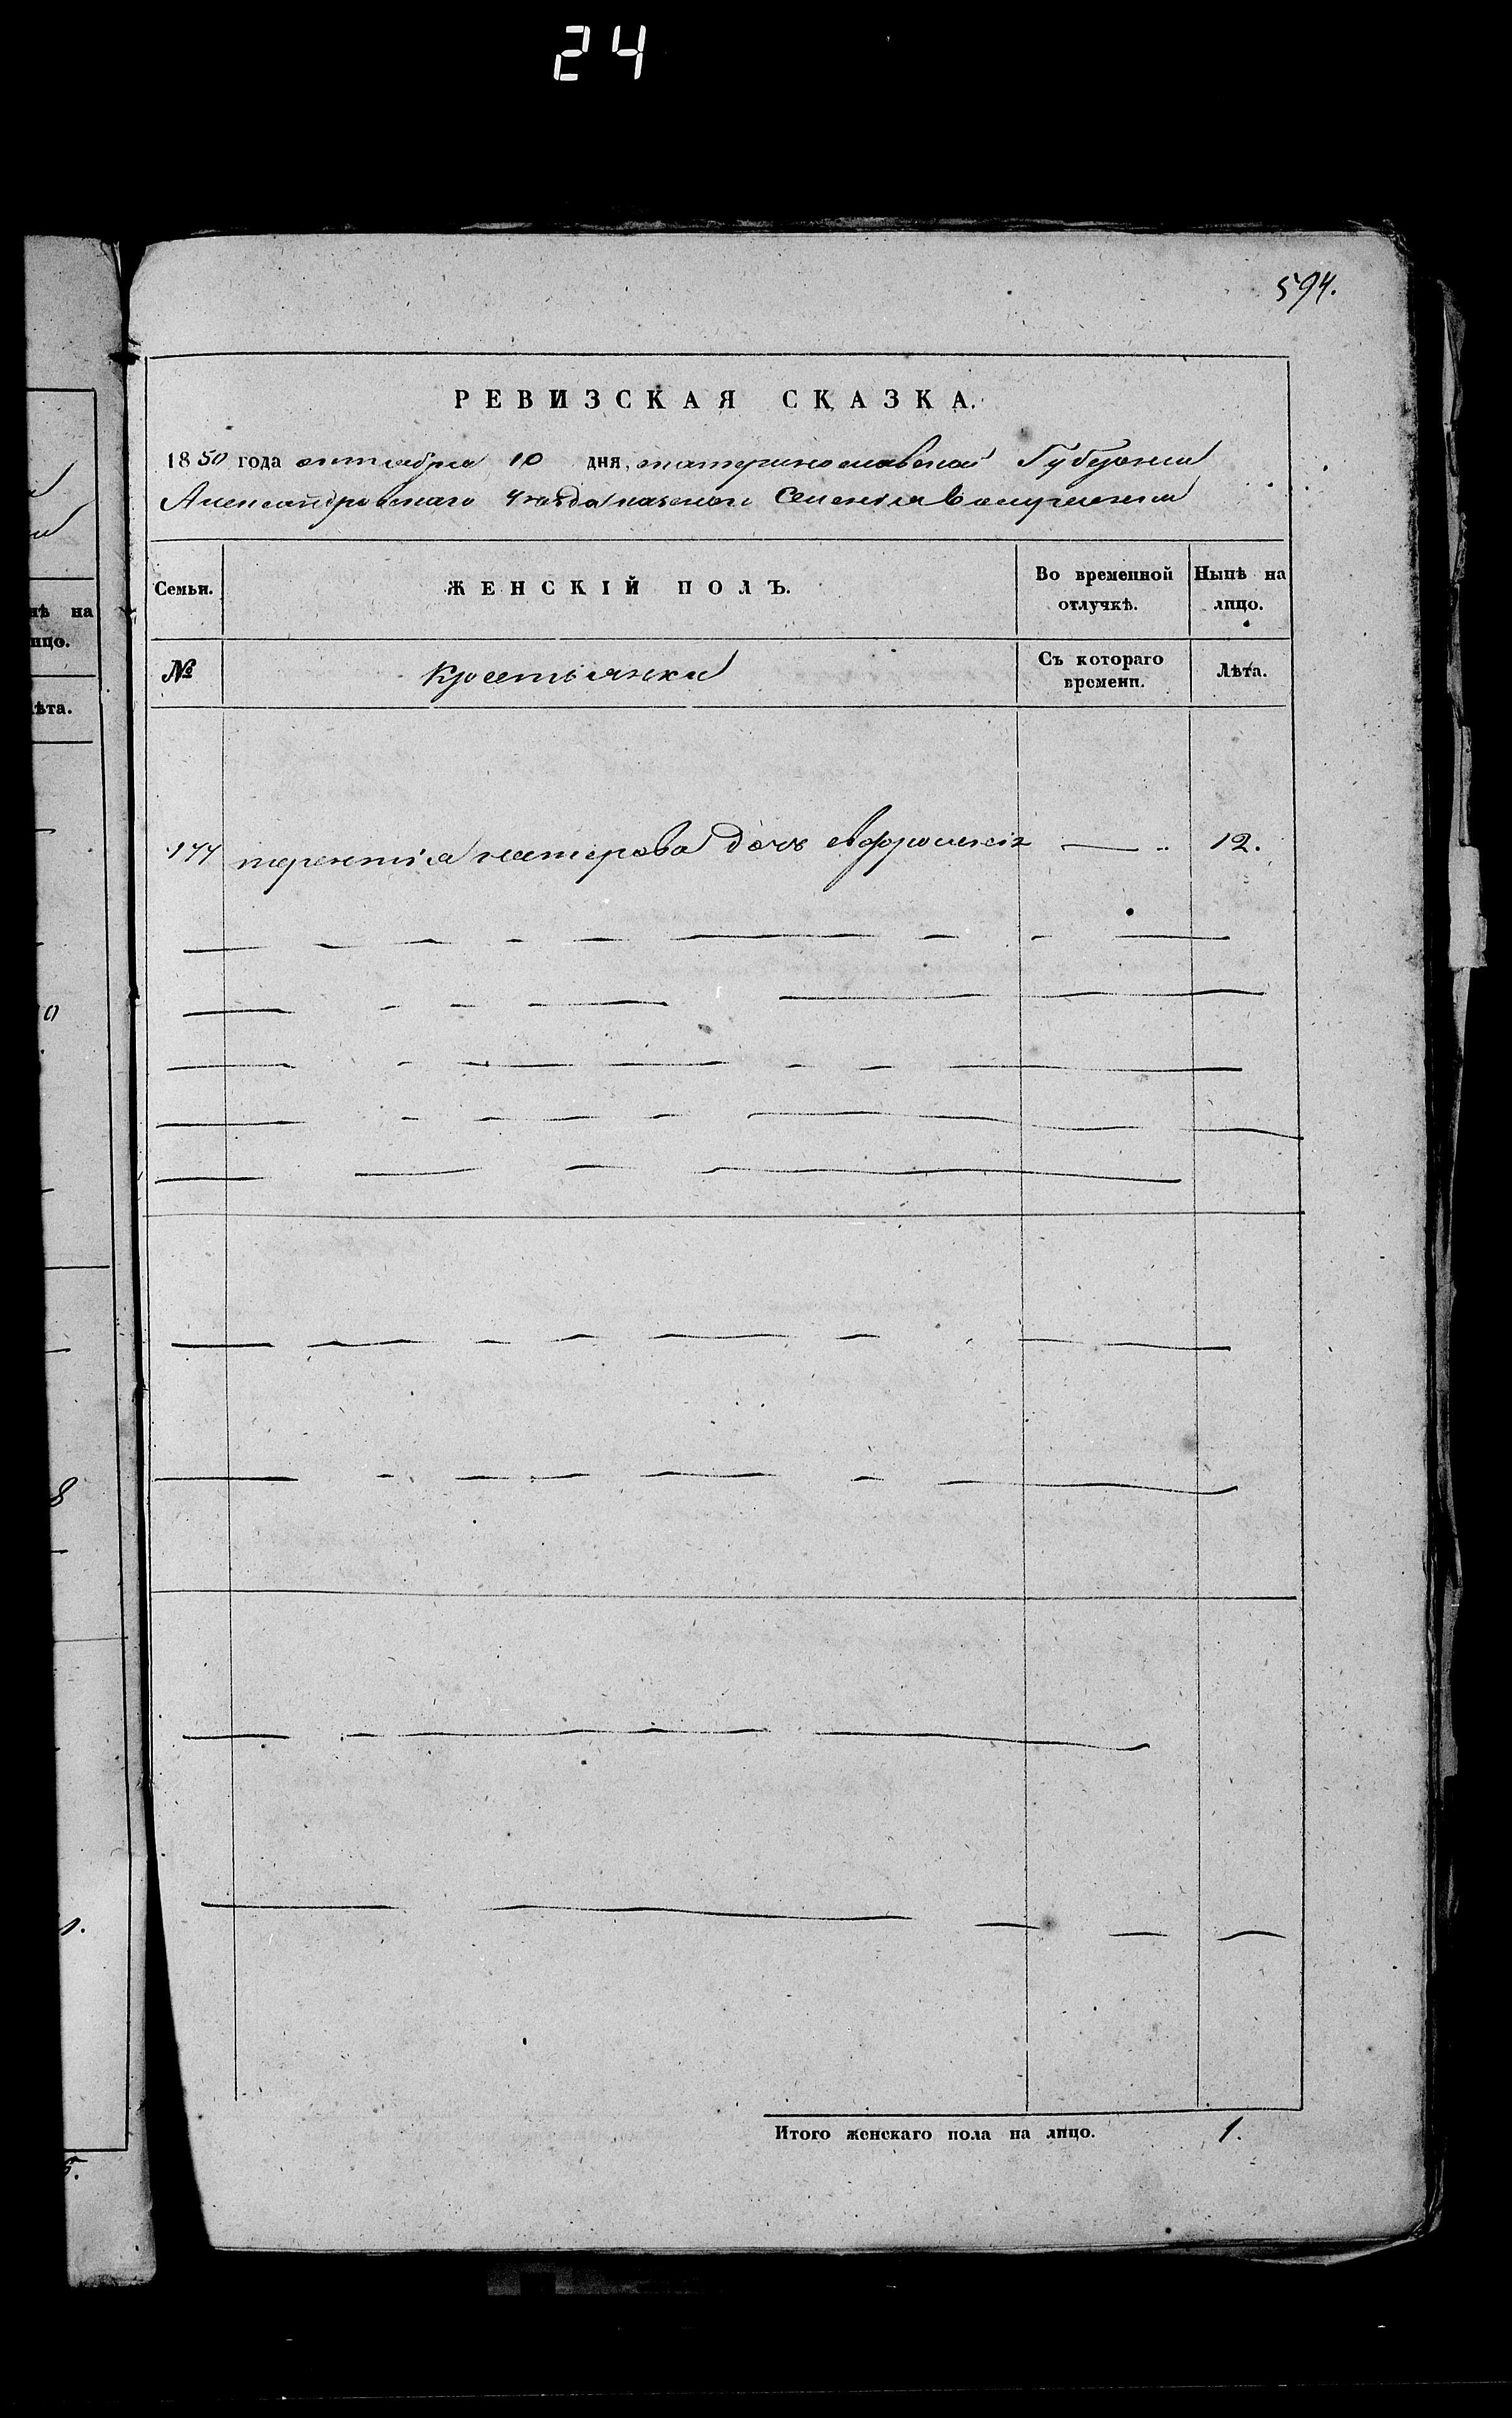 24
594.
РЕВИЗСКАЯ СКАЗКА.
1850 года октября 10 дня, Екатеринославской Губернии
Александровскаго уезда казенной Селения
Семьи.
ЖЕНСКІЙ ПОЛЪ.
Во временной отлучкѣ.
Нынѣ на лицо.
№
Крестьянки
Съ котораго времени.
Лѣта.
177 терентія дочь евфросинія — 12.
Итого женскаго пола на лицо. 1.
нѣ на
ицо.
ѣта.
0
8